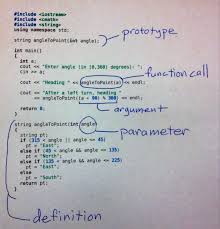 #include <iostream>
#include <cmath>
#include <string>
using namespace std;
string angleToPoint(int angle);
prototype
int main()
{
int a;
cout << "Enter angle (in [0,360) degrees): ";
cin >> a;
function call
cout << "Heading " << angleToPoint(a) << endl;
cout << "After a left turn, heading "
<< angleToPoint((a + 90) % 360) << endl;
return 0;
argument
}
string angleToPoint(int angle)
parameter
{
string pt;
if (315 < angle || angle <= 45)
pt = "East";
else if (45 < angle && angle <= 135)
pt = "North";
else if (135 < angle && angle <= 225)
pt = "East";
else
pt = "South";
return pt;
}
definition